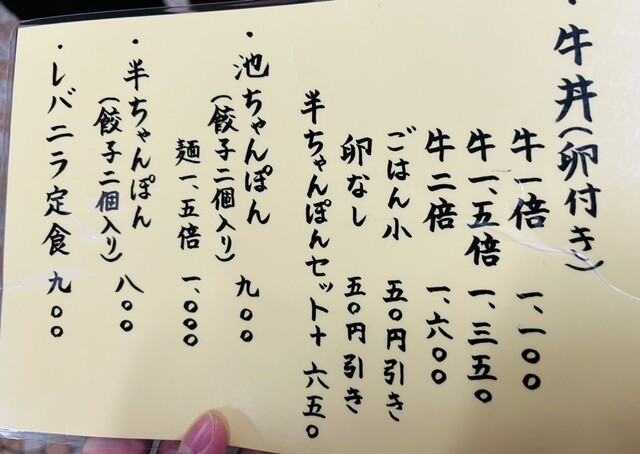 ・牛丼(卵付き)
牛一倍 一、一〇〇
牛一、五倍 一、三五〇
牛二倍 一、六〇〇
ごはん小 五〇円引き
卵なし 五〇円引き
半ちゃんぽんセット+ 六五〇
・池ちゃんぽん 九〇〇
(餃子二個入り)
麺一、五倍 一、〇〇〇
・半ちゃんぽん 八〇〇
(餃子二個入り)
・レバニラ定食 九〇〇